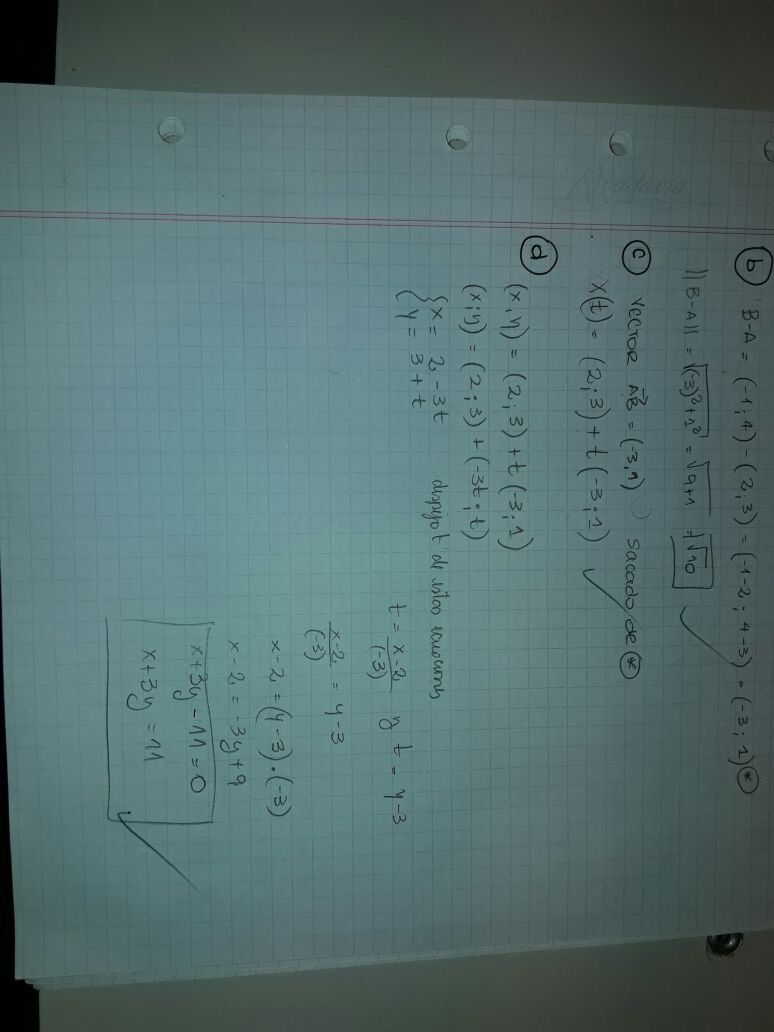 Rivadavia
b B-A = (-1;4) - (2;3) = (-1-2; 4-3) = (-3;1) *
||B-A|| = √(-3)²+1² = √9+1 = √10
c VECTOR AB = (-3,1) sacado de *
X(t) = (2;3) + t(-3;1)
d (x,y) = (2;3) + t(-3;1)
(x;y) = (2;3) + (-3t;t)
{x = 2 - 3t
{y = 3 + t despejo t de estas ecuaciones
t = x-2/(-3) y t = y-3
x-2/(-3) = y-3
x-2 = (y-3)·(-3)
x-2 = -3y+9
x+3y-11=0
x+3y=11